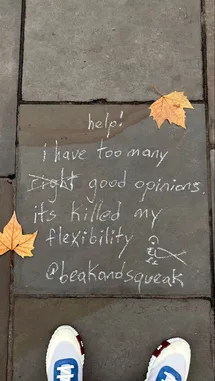 help!
i have too many
right good opinions.
its killed my
flexibility
@beakandsqueak